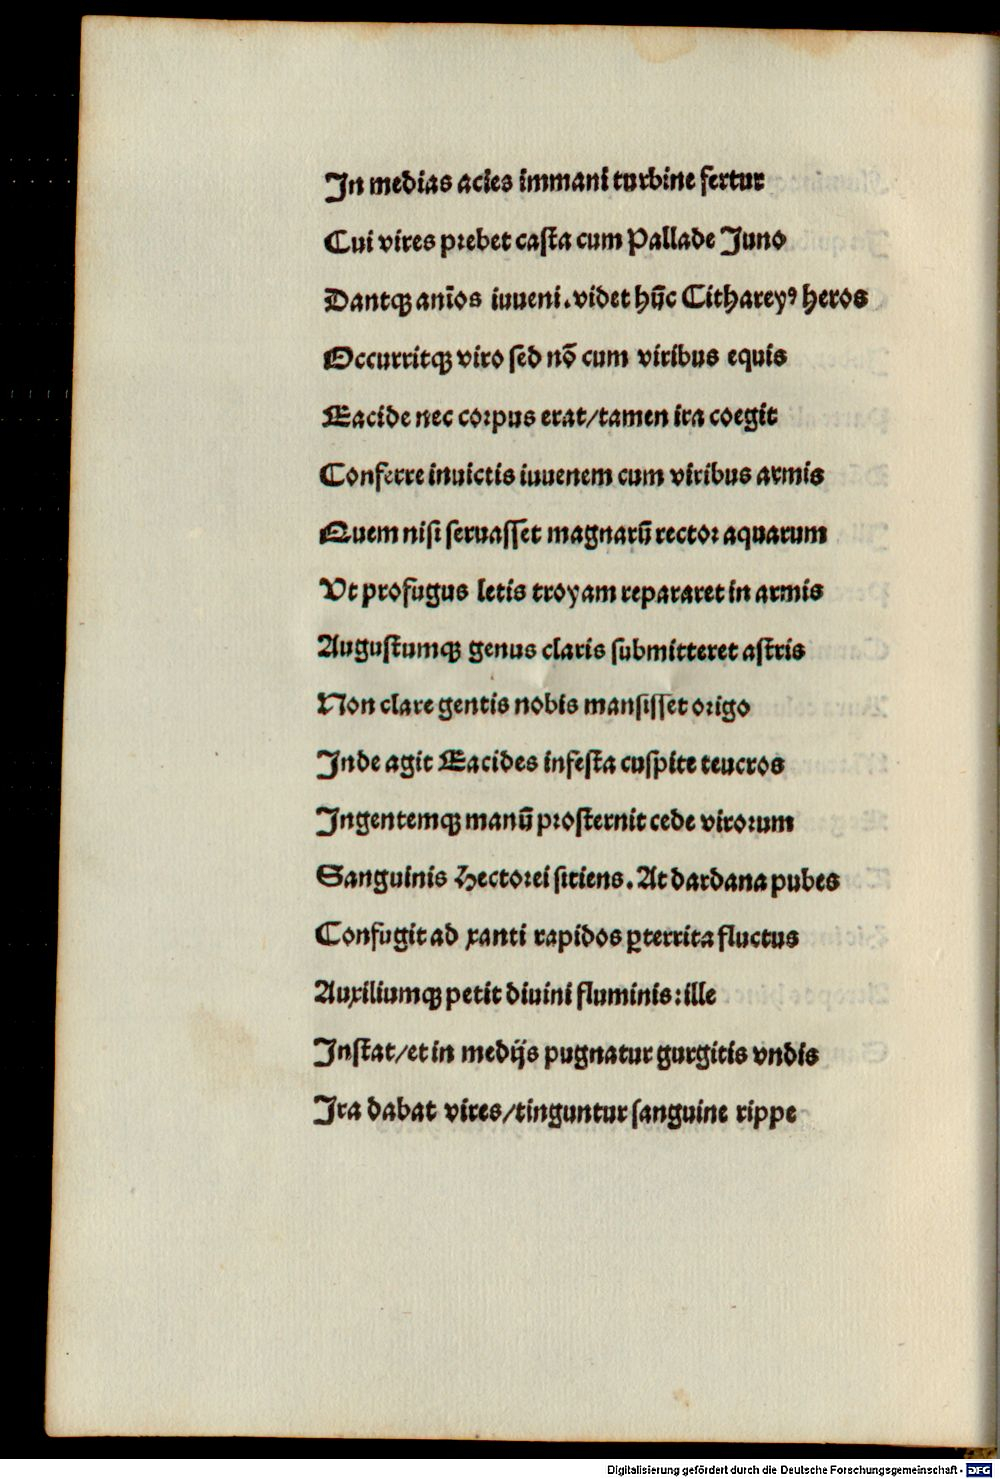 In medias acies immani turbine fertur
Cui vires prebet casta cum Pallade Juno
Dantqꝫ anīos iuueni. videt hūc Cithareyꝰ heros
Occurritqꝫ viro sed nō cum viribus equis
Eacide nec corpus erat/tamen ira coegit
Conferre inuictis iuuenem cum viribus armis
Quem nisi seruasset magnarū rector aquarum
Vt profugus letis troyam repararet in armis
Augustumqꝫ genus claris submitteret astris
Non clare gentis nobis mansisset origo
Inde agit Eacides infesta cuspite teucros
Ingentemqꝫ manū prosternit cede virorum
Sanguinis Hectorei sitiens. At dardana pubes
Confugit ad xanti rapidos ꝑterrita fluctus
Auxiliumqꝫ petit diuini fluminis: ille
Instat/et in medijs pugnatur gurgitis vndis
Ira dabat vires/tinguntur sanguine rippe
Digitalisierung gefördert durch die Deutsche Forschungsgemeinschaft - DFG